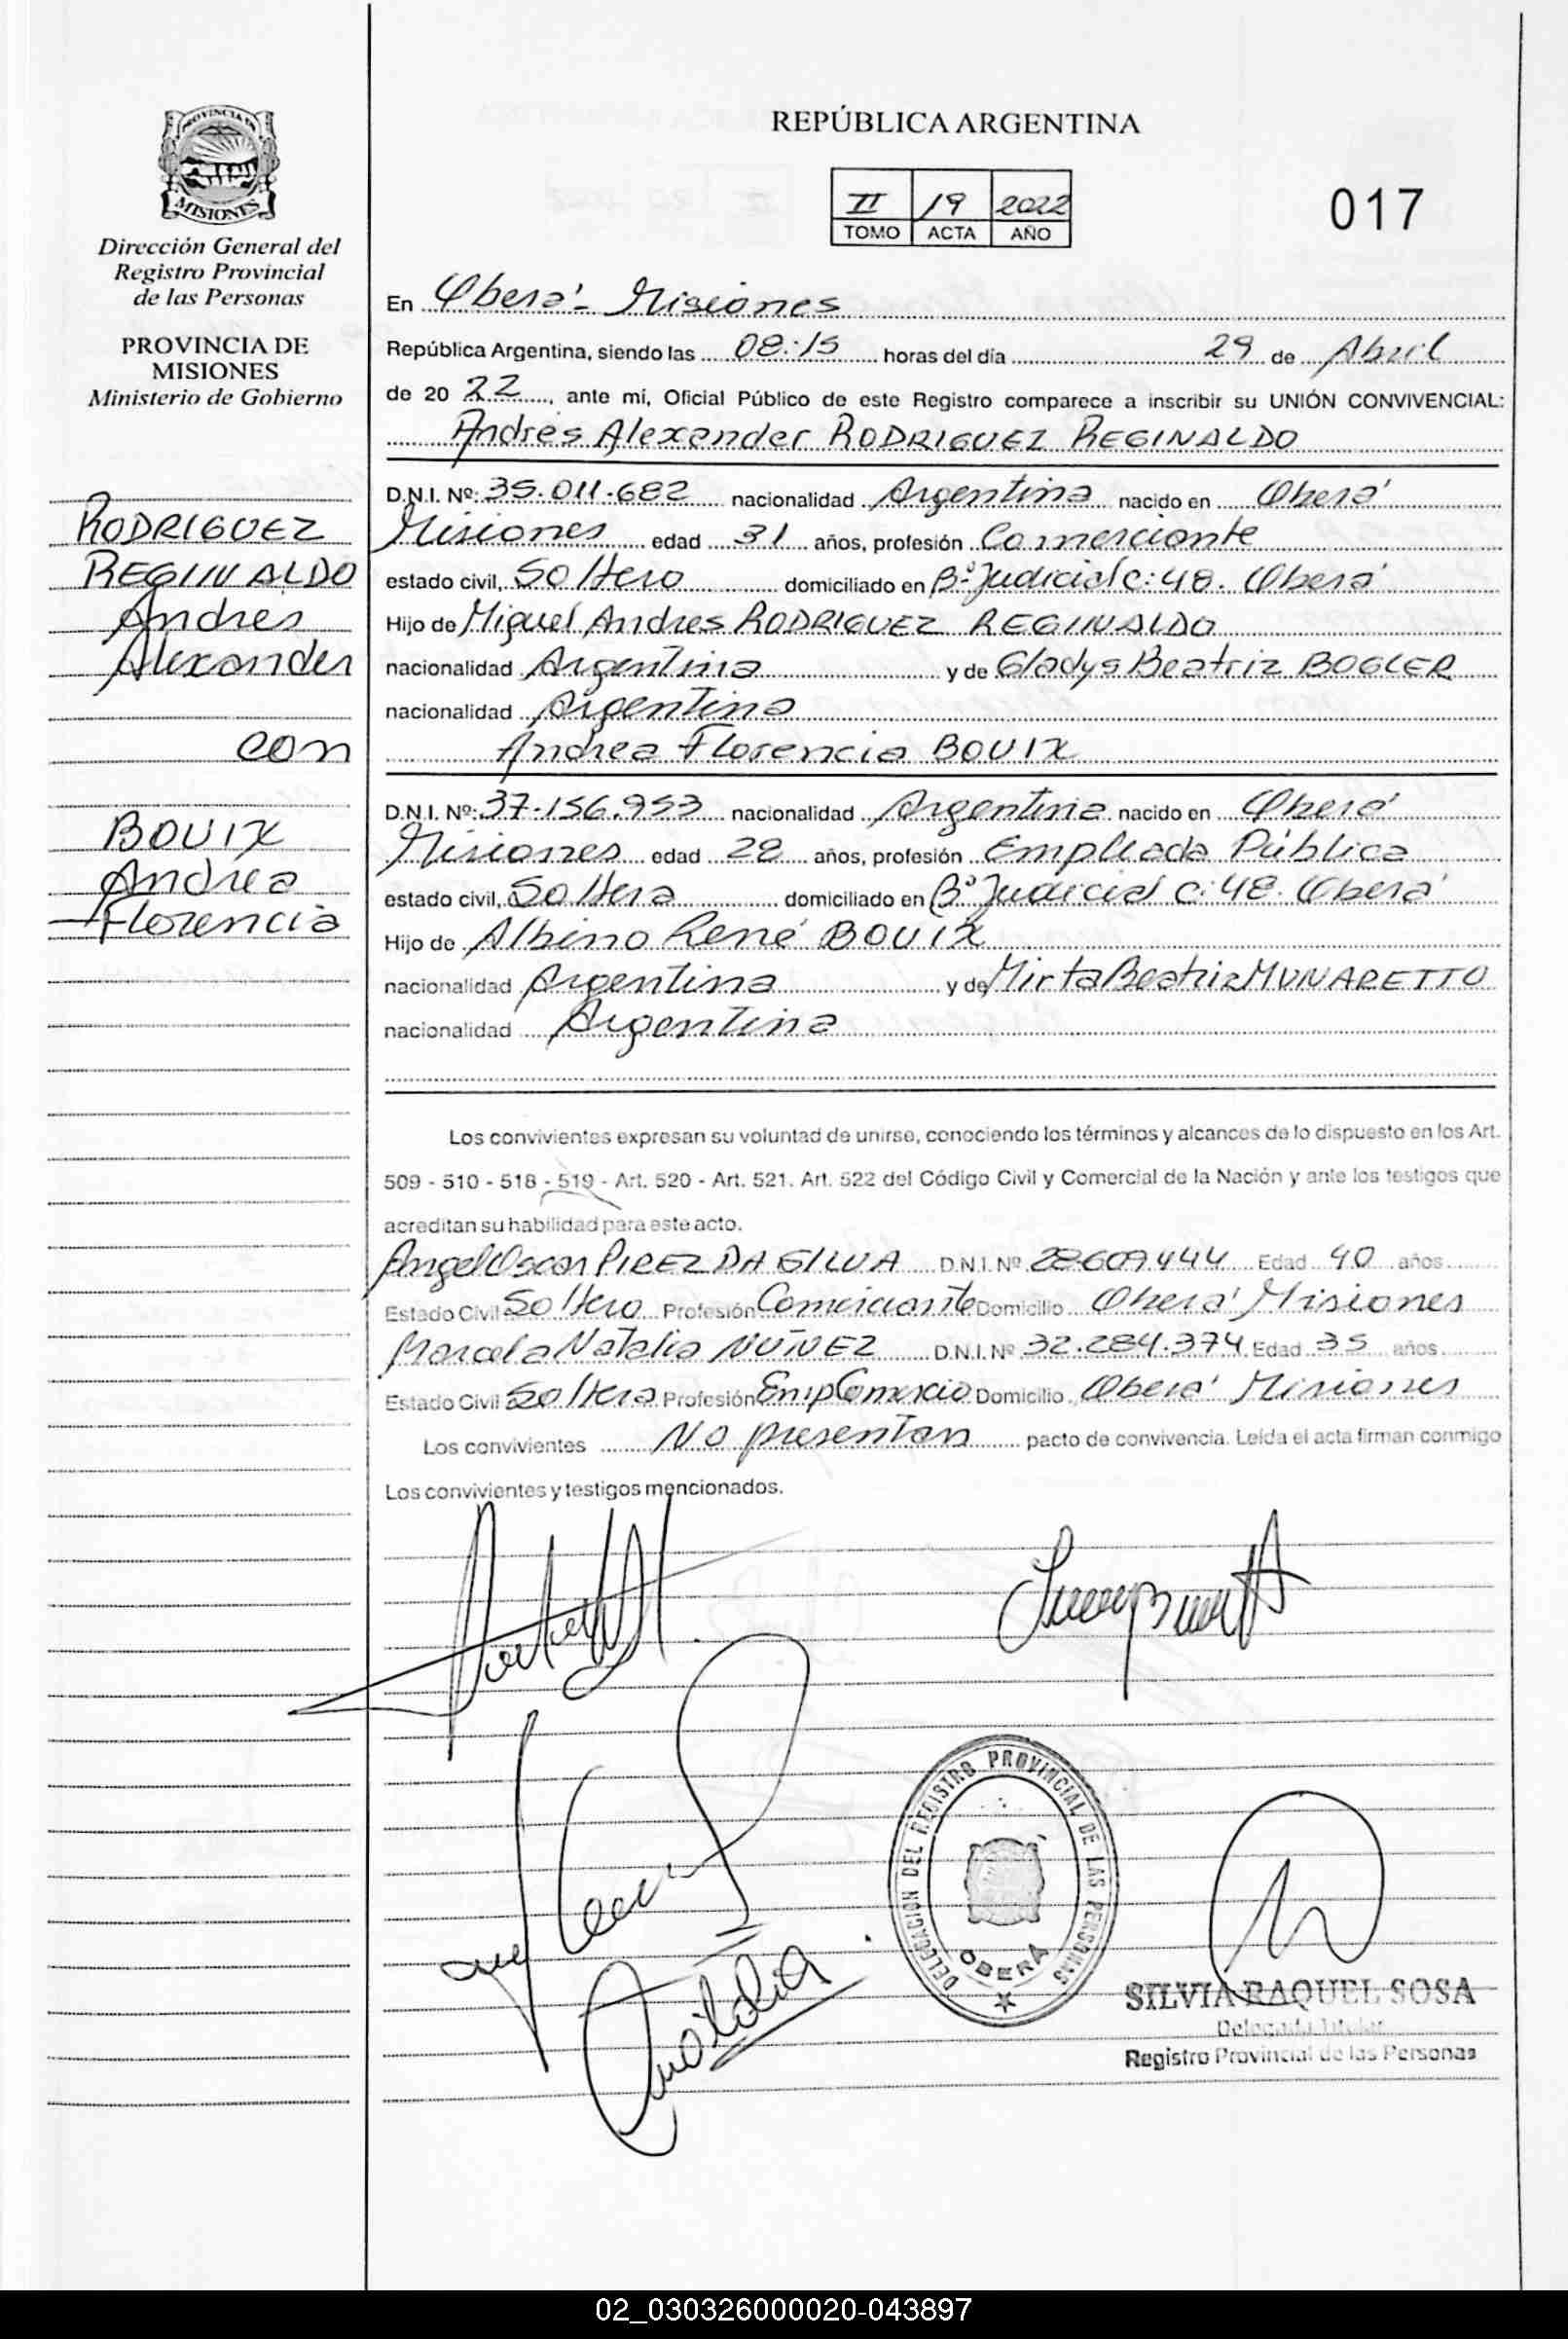 PROVINCIA DE
MISIONES
Dirección General del
Registro Provincial
de las Personas
PROVINCIA DE
MISIONES
Ministerio de Gobierno
RODRIGUEZ
REGINALDO
Andres
Alexander
con
BOUIX
Andrea
Florencia
REPÚBLICA ARGENTINA
II 19 2022
TOMO ACTA AÑO
017
En Oberá - Misiones
República Argentina, siendo las 08:15 horas del día 29 de Abril
de 20 22, ante mí, Oficial Público de este Registro comparece a inscribir su UNIÓN CONVIVENCIAL:
Andres Alexander RODRIGUEZ REGINALDO
D.N.I. Nº: 35.011.682 nacionalidad Argentina nacido en Oberá
Misiones edad 31 años, profesión Comerciante
estado civil, Soltero domiciliado en Bº Judicial C:48. Oberá
Hijo de Miguel Andres RODRIGUEZ REGINALDO
nacionalidad Argentina y de Gladys Beatriz BOGLER
nacionalidad Argentina
Andrea Florencia BOUIX
D.N.I. Nº: 37.156.953 nacionalidad Argentina nacido en Oberá
Misiones edad 28 años, profesión Empleada Pública
estado civil, Soltera domiciliado en Bº Judicial C:48. Oberá
Hijo de Albino René BOUIX
nacionalidad Argentina y de Mirta Beatriz MUNARETTO
nacionalidad Argentina
Los convivientes expresan su voluntad de unirse, conociendo los términos y alcances de lo dispuesto en los Art.
509 - 510 - 518 - 519 - Art. 520 - Art. 521. Art. 522 del Código Civil y Comercial de la Nación y ante los testigos que
acreditan su habilidad para este acto.
Angel Oscar PIREZ DA SILVA D.N.I. Nº 28.609.444 Edad 40 años
Estado Civil Soltero Profesión Comerciante Domicilio Oberá Misiones
Marcela Natalia NUÑEZ D.N.I. Nº 32.284.374 Edad 35 años
Estado Civil Soltera Profesión Emp Comercio Domicilio Oberá Misiones
Los convivientes No presentan pacto de convivencia. Leída el acta firman conmigo
Los convivientes y testigos mencionados.
Natalia
DELEGACION DEL REGISTRO PROVINCIAL DE LAS PERSONAS
OBERÁ
SILVIA RAQUEL SOSA
Delegada Titular
Registro Provincial de las Personas
02_030326000020-043897